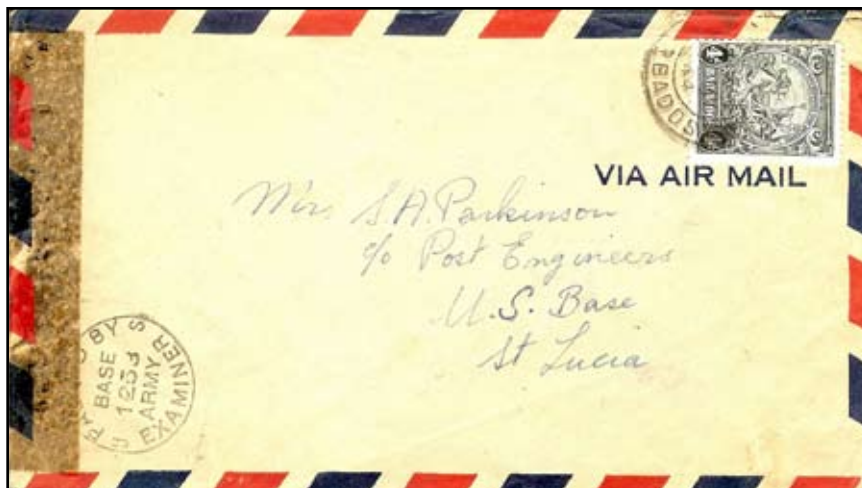 BADOS
VIA AIR MAIL
Mrs S.A. Parkinson
c/o Post Engineers
U.S. Base
St Lucia
BY
BASE
1233
ARMY
EXAMINER S